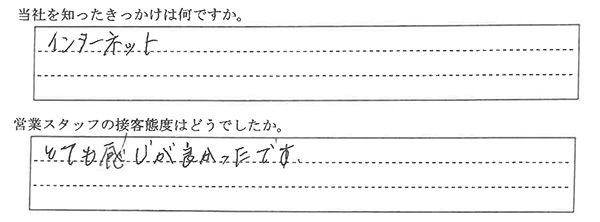 当社を知ったきっかけは何ですか。
インターネット
営業スタッフの接客態度はどうでしたか。
とても感じが良かったです.